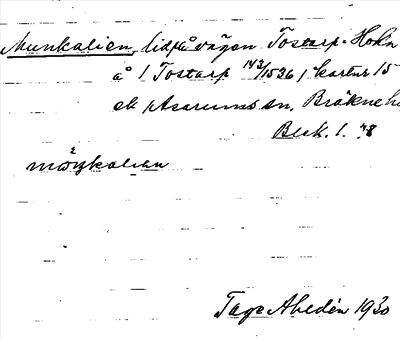 Munkalien, lid på vägen Tostarp-Hokn
å / Tostarp 143/1536 / kartnr 15
ek / Asarums sn, Bräkneh
Blek. l. 48
Tage Ahldén 1930